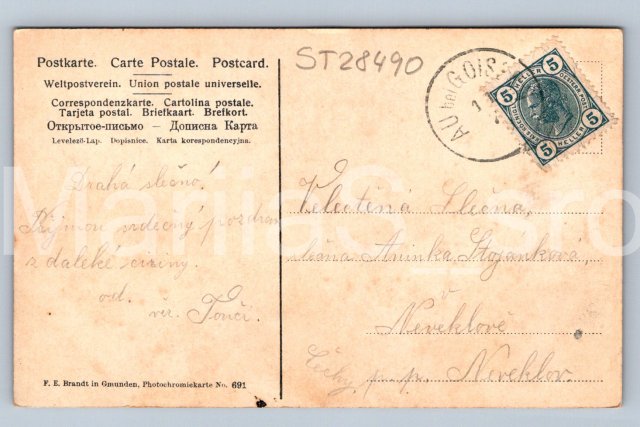 Postkarte. Carte Postale. Postcard.
Weltpostverein. Union postale universelle.
Correspondenzkarte. Cartolina postale.
Tarjeta postal. Briefkaart. Brefkort.
Открытое-письмо — Дописна Карта
Levelező-Lap. Dopisnice. Karta korespondencyjna.
ST28490
AU bei GOIS
5 HELLER 5
5 HELLER 5
Drahá slečno!
Přijmou srdečný pozdrav
z daleké ciziny.
od.
Tonči.
Velectěná Slečna,
slečna Aninka Stojánková,
v
Neveklově
Čechy p. p. Neveklov.
F. E. Brandt in Gmunden, Photochromiekarte No. 691